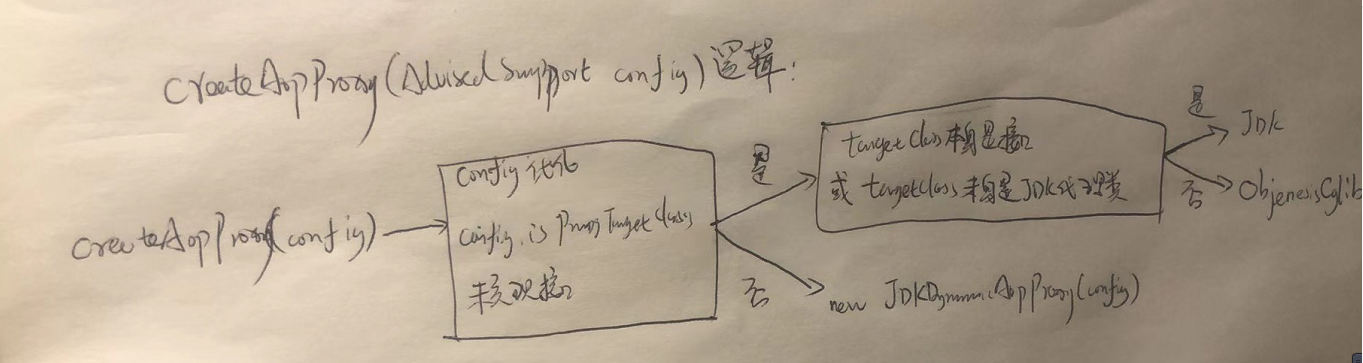 createAopProxy(AdvisedSupport config)逻辑:
createAopProxy(config)
config优化
config.isProxyTargetClass
未实现接口
是
否
targetClass本身是接口
或targetClass本身是JDK代理类
new JDKDynamicAopProxy(config)
是
JDK
否
ObjenesisCglib